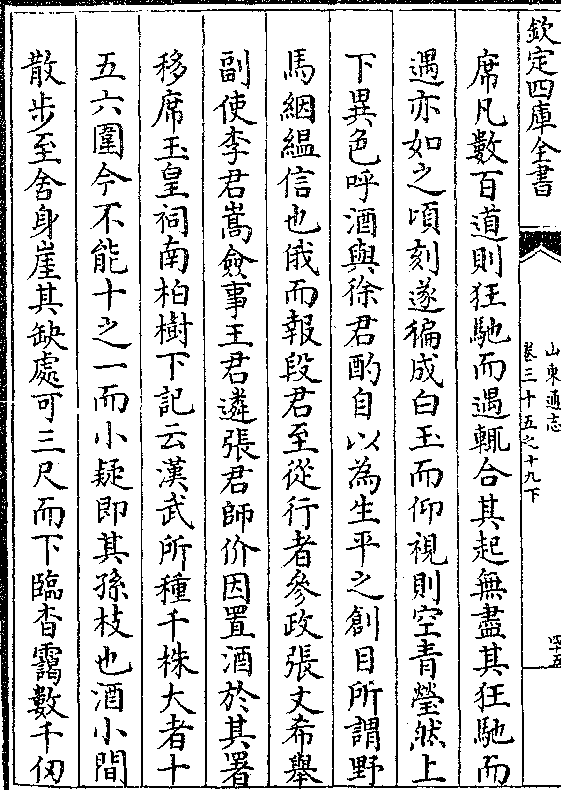 欽定四庫全書
山東通志
卷三十五之十九下
四五
席凡數百道則狂馳而遇輒合其起無盡其狂馳而
遇亦如之頃刻遂徧成白玉而仰視則空青瑩然上
下異色呼酒與徐君酌自以為生平之創目所謂野
馬絪緼信也俄而報段君至從行者參政張丈希舉
副使李君嵩僉事王君遴張君師价因置酒於其署
移席玉皇祠南柏樹下記云漢武所種千株大者十
五六圍今不能十之一而小疑即其孫枝也酒小間
散步至舍身崖其缺處可三尺而下臨杳靄數千仞